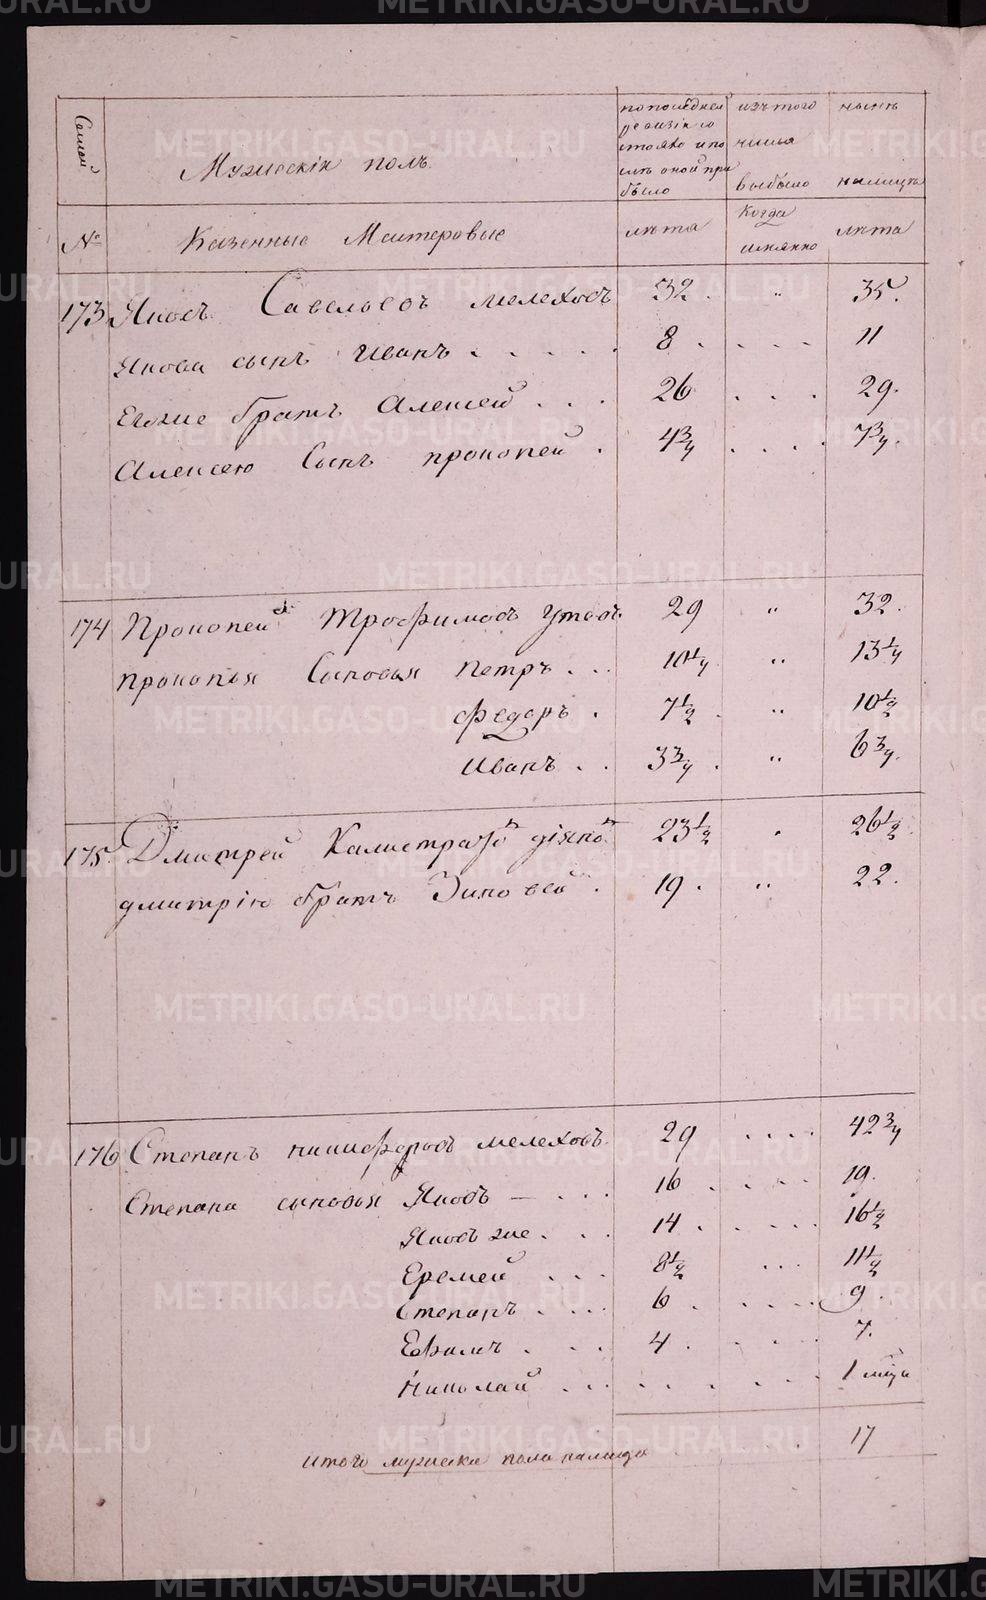 Семьи
Мужескій полъ.
по последней ревизіи состояло и после оной прибыло
изъ того числа выбыло
ныне налицо
№
Казенные Мастеровые
лета
Когда имянно
лета
173 Яковъ Савельевъ мелеховъ 32 . " 35.
Якова сынъ Иванъ . . . . . 8 . . . . . 11
Его же братъ Алексей . . . 26 . . . 29.
Алексею Сынъ прокопей . 4¾ . . . . 7¾.
174 Прокопей Трофимовъ Утевъ 29 " 32.
прокопья Сыновья Петръ . . . 10¼ " 13¼
федоръ . 7½ . " 10½
Иванъ . . 3¾ . " 6¾.
175. Дмитрей Калистратовъ діяко 23½ . 26½.
дмитрію братъ Зиновей . 19 . " 22.
176 Степанъ никифоровъ мелеховъ 29 . . . . 42¾
Степана сыновья Яковъ — . . . 16 . . . . 19.
Яковъ же . . . 14 . . . . . 16½
Еремей . . . 8½ . . . 11½
Степанъ . . . . 6 . . . . . 9 .
Ефимъ . . . 4 . . . . . 7.
Николай . . . . . . . . . . 1 мцъ
итого мужеска пола налицо . . . 17
METRIKI.GASO-URAL.RU